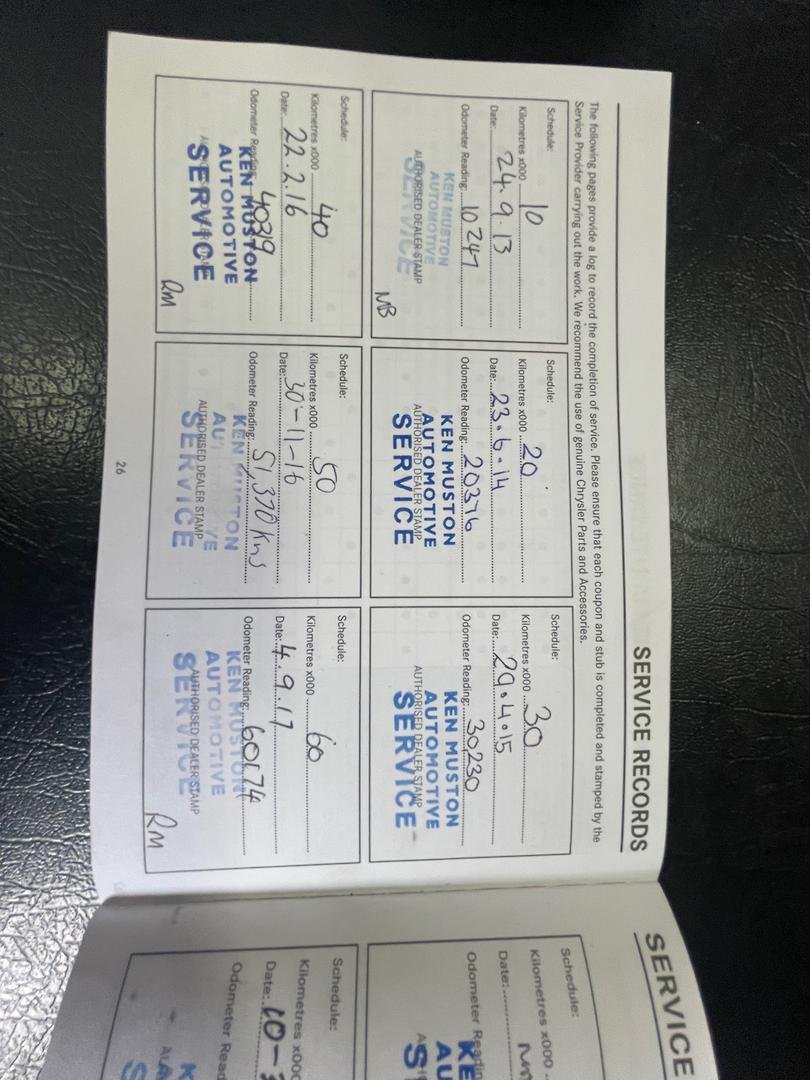 SERVICE RECORDS
The following pages provide a log to record the completion of service. Please ensure that each coupon and stub is completed and stamped by the
Service Provider carrying out the work. We recommend the use of genuine Chrysler Parts and Accessories.
Schedule:
Kilometres x000 10
Date: 24.9.13
Odometer Reading: 10247
KEN MUSTON
AUTOMOTIVE
AUTHORISED DEALER STAMP
SERVICE
MB
Schedule:
Kilometres x000 20
Date: 23.6.14
Odometer Reading: 20376
KEN MUSTON
AUTOMOTIVE
AUTHORISED DEALER STAMP
SERVICE
Schedule:
Kilometres x000 30
Date: 29.4.15
Odometer Reading: 30230
KEN MUSTON
AUTOMOTIVE
AUTHORISED DEALER STAMP
SERVICE
Schedule:
Kilometres x000 40
Date: 22.2.16
Odometer Reading: 40319
KEN MUSTON
AUTOMOTIVE
SERVICE
RM
Schedule:
Kilometres x000 50
Date: 30-11-16
Odometer Reading: 51,370 kms
KEN MUSTON
AUTHORISED DEALER STAMP
SERVICE
Schedule:
Kilometres x000 60
Date: 4.9.17
Odometer Reading:
KEN MUSTON
AUTOMOTIVE
AUTHORISED DEALER STAMP
SERVICE
RM
26
SERVICE
Schedule:
Kilometres x000
Date:
Odometer Readin
KE
AU
S
Schedule:
Kilometres x000
Date: 10-
Odometer Read
K
A
S